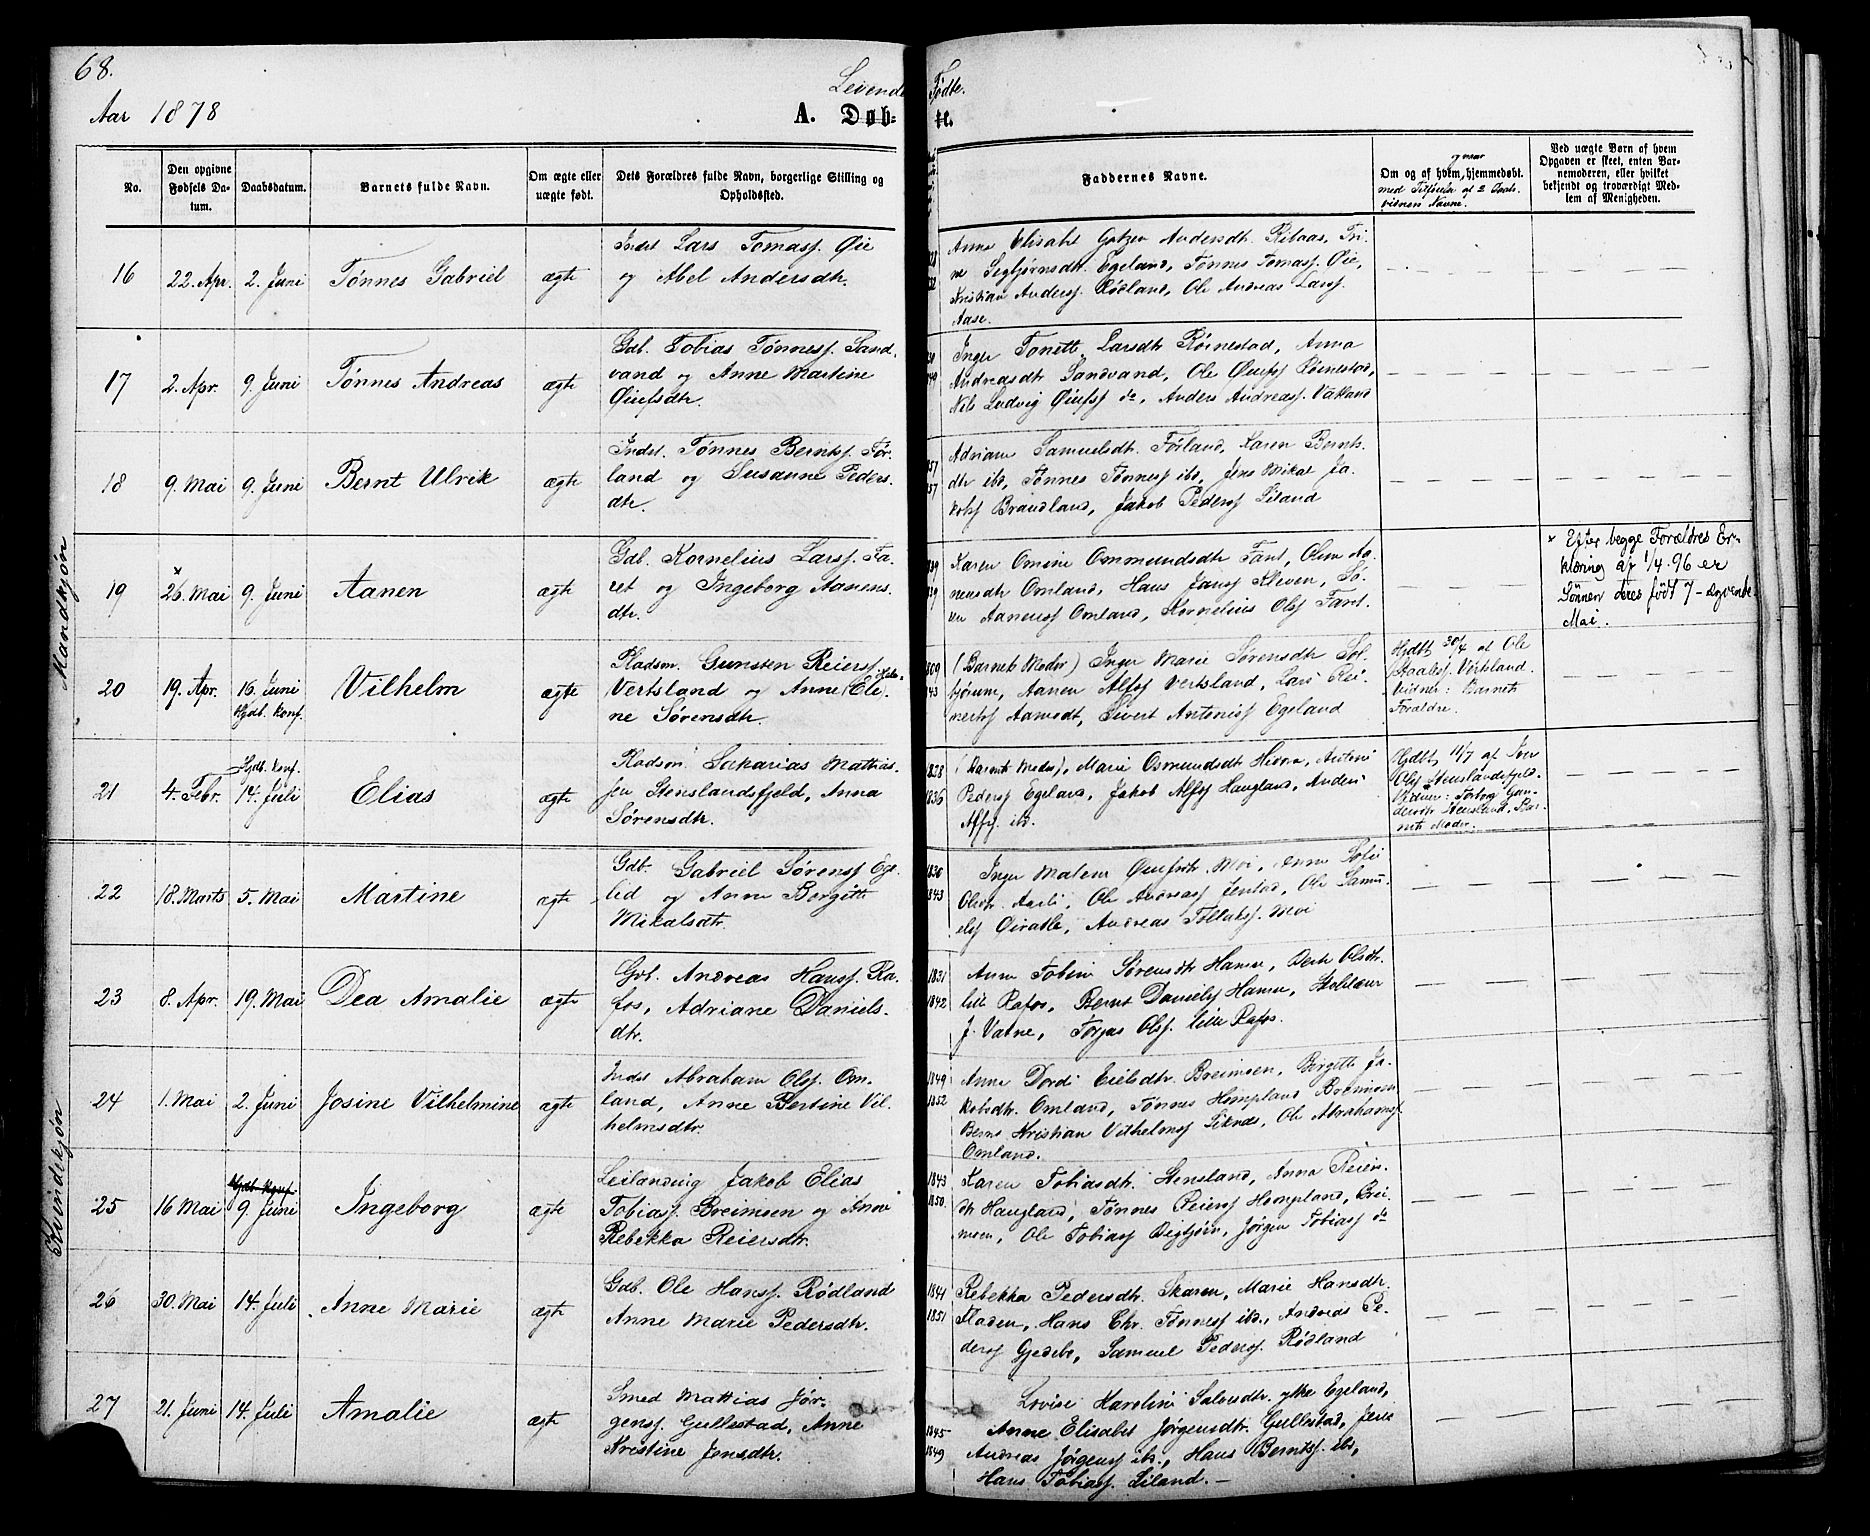 68.
Levende Fødte.
Aar 1878
A. Døb-te.
No.
Den opgivne Fødsels Datum.
Daabsdatum.
Barnets fulde Navn.
Om ægte eller uægte født.
Dets Forældres fulde Navn, borgerlige Stilling og Opholdssted.
Faddernes Navne.
Om og af hvem, og naar hjemmedøbt.
med Tilføielse af 2 Daabs-
vidners Navne.
Ved uægte Børn af hvem Opgaven er skeet, enten Barnemoderen, eller hvilket bekjendt og troværdigt Medlem af Menigheden.
Mandkjøn
16 22. Apr. 2. Juni Tønnes Gabriel ægte
Indst. Lars Tomass. Øie
og Abel Andersdtr.
Anna Elisabet Andersdtr. Tri-
ne Sigbjørnsdtr. Egeland, Tønnes Tomass. Øie,
Kristian Anderss. Rødland, Ole Andreas Larss.
Aase.
17 2. Apr. 9. Juni Tønnes Andreas ægte
Gdb. Tobias Tønness. Sand-
vand og Anne Martine
Øiufsdtr.
Inger Tonette Larsdtr. Rørnestad, Anna
Andreasdtr. Sandvand, Ole Øiufss. Rørnestad,
Nils Ludvig Øiufss. do, Anders Andreass. Vatland
18 9. Mai 9. Juni Bernt Ulrik ægte
Indst. Tønnes Berntss. Før-
land og Susanne Peders-
dtr.
Adriane Samuelsdtr. Førland, Karen Bernts-
dtr ibd, Tønnes Tønness ibd, Jens Mikal Ja-
kobss Brandland, Jakob Pederss Liland
19 * 26. Mai 9. Juni Aanen ægte
Gdb. Kornelius Larss. Fa-
ret og Ingeborg Aanens-
dtr.
Karen Omine Ommundsdtr Fant, Oline Aa-
nensdtr Omland, Hans Janss Kleven, Sø-
ren Aanenss Omland, Kornelius Olss Fant.
* Efter begge Forældres Er-
klæring af 1/4.96 er
Sønnen deres født 7 - syvende
Mai.
20 19. Apr. 16. Juni Vilhelm ægte
Hjdb. konf.
Pladsm. Gunsten Reierss
Vertsland og Anne Ele-
ne Sørensdtr.
1809
(Barnets Moder) Inger Marie Sørensdtr Sol-
bjørum, Aanen Alfss Vertsland, Lars Rei-
nertss Aamodt, Sivert Antoniss Egeland
Hjdbt 30/4 af Ole
Staaless. Vertsland.
Vidner: Barnets
Forældre.
21 4. Febr. Hjdb. konf.
14. Juli Elias ægte
Pladsm. Sakarias Mathias-
sen Stenslandsfjeld, Anna
Sørensdtr.
1838
1836
(Barnets Moder), Marie Osmundsdtr Antoni
Pederss Egeland, Jakob Alfss Haugland, Anders
Alfss. ibd.
Hjdbt 11/7 af
Olss Stenslandsfjeld.
Vidner: Torborg Gun-
dersdtr Stensland, Bar-
nets Moder.
22 18. Marts 5. Mai Martine ægte
Gdb. Gabriel Sørenss Eg-
lid og Anne Borgitte
Mikalsdtr.
1830
1843
Inger Malene Øiufsdtr. Moi, Anne Sofie
Olsdtr. Ole Andreass Ole Samu-
elss Andreas Tollakss. Moi
23 8. Apr. 19. Mai Dea Amalie ægte
Gdb. Andreas Hanss. Ra-
fos, Adriane Daniels-
dtr.
1831
1842
Anne Tobine Sørensdtr Berte Olsdtr.
lille Rafos, Bernt Danielss
J. Vatne, Torjus Olss. lille Rafos.
Kvindekjøn
24 1. Mai 2. Juni Josine Vilhelmine ægte
Indst Abraham Olss. Om-
land, Anne Bertine Vil-
helmsdtr.
1849
1852
Anne Dordi Eielsdtr. Breimoen, Birgitte Ja-
kobsdtr. Omland, Tønnes Hompland Breimoen
Bernt Kristian Vilhelmss Liknes, Ole Abrahamss.
Omland.
25 16 Mai Hjdb. konf.
9. Juni Ingeborg ægte
Leilænding Jakob Elias
Tobiass. Breimoen og Anne
Rebekka Reiersdtr.
1843
1850.
Karen Tobiasdtr. Stensland, Anna Reiers-
dtr Haugland, Tønnes Reierss Hompland, Brei-
moen, Ole Tobiass Jørgen Tobiass do
26 30. Mai 14. Juli Anne Marie ægte
Gdb. Ole Hanss. Rødland
Anne Marie Pedersdtr.
1841
1851
Rebekka Pedersdtr. Skaren, Marie Hansdtr.
Fladen, Hans Chr. Tønness ibd., Andreas Pe-
derss Gjedebo, Samuel Pederss. Rødland
27 21. Juni 14. Juli Amalie ægte
Smed Mattias Jør-
genss. Gullestad, Anne
Kristine Jensdtr.
1845
1849
Lovise Karoline Salvesdtr. ytre Egeland,
Anne Elisabet Jørgensdtr. Gullestad, Jens
Andreas Jørgenss ibd., Hans Berntss. ibd,
Hans Tobiass. Liland. -